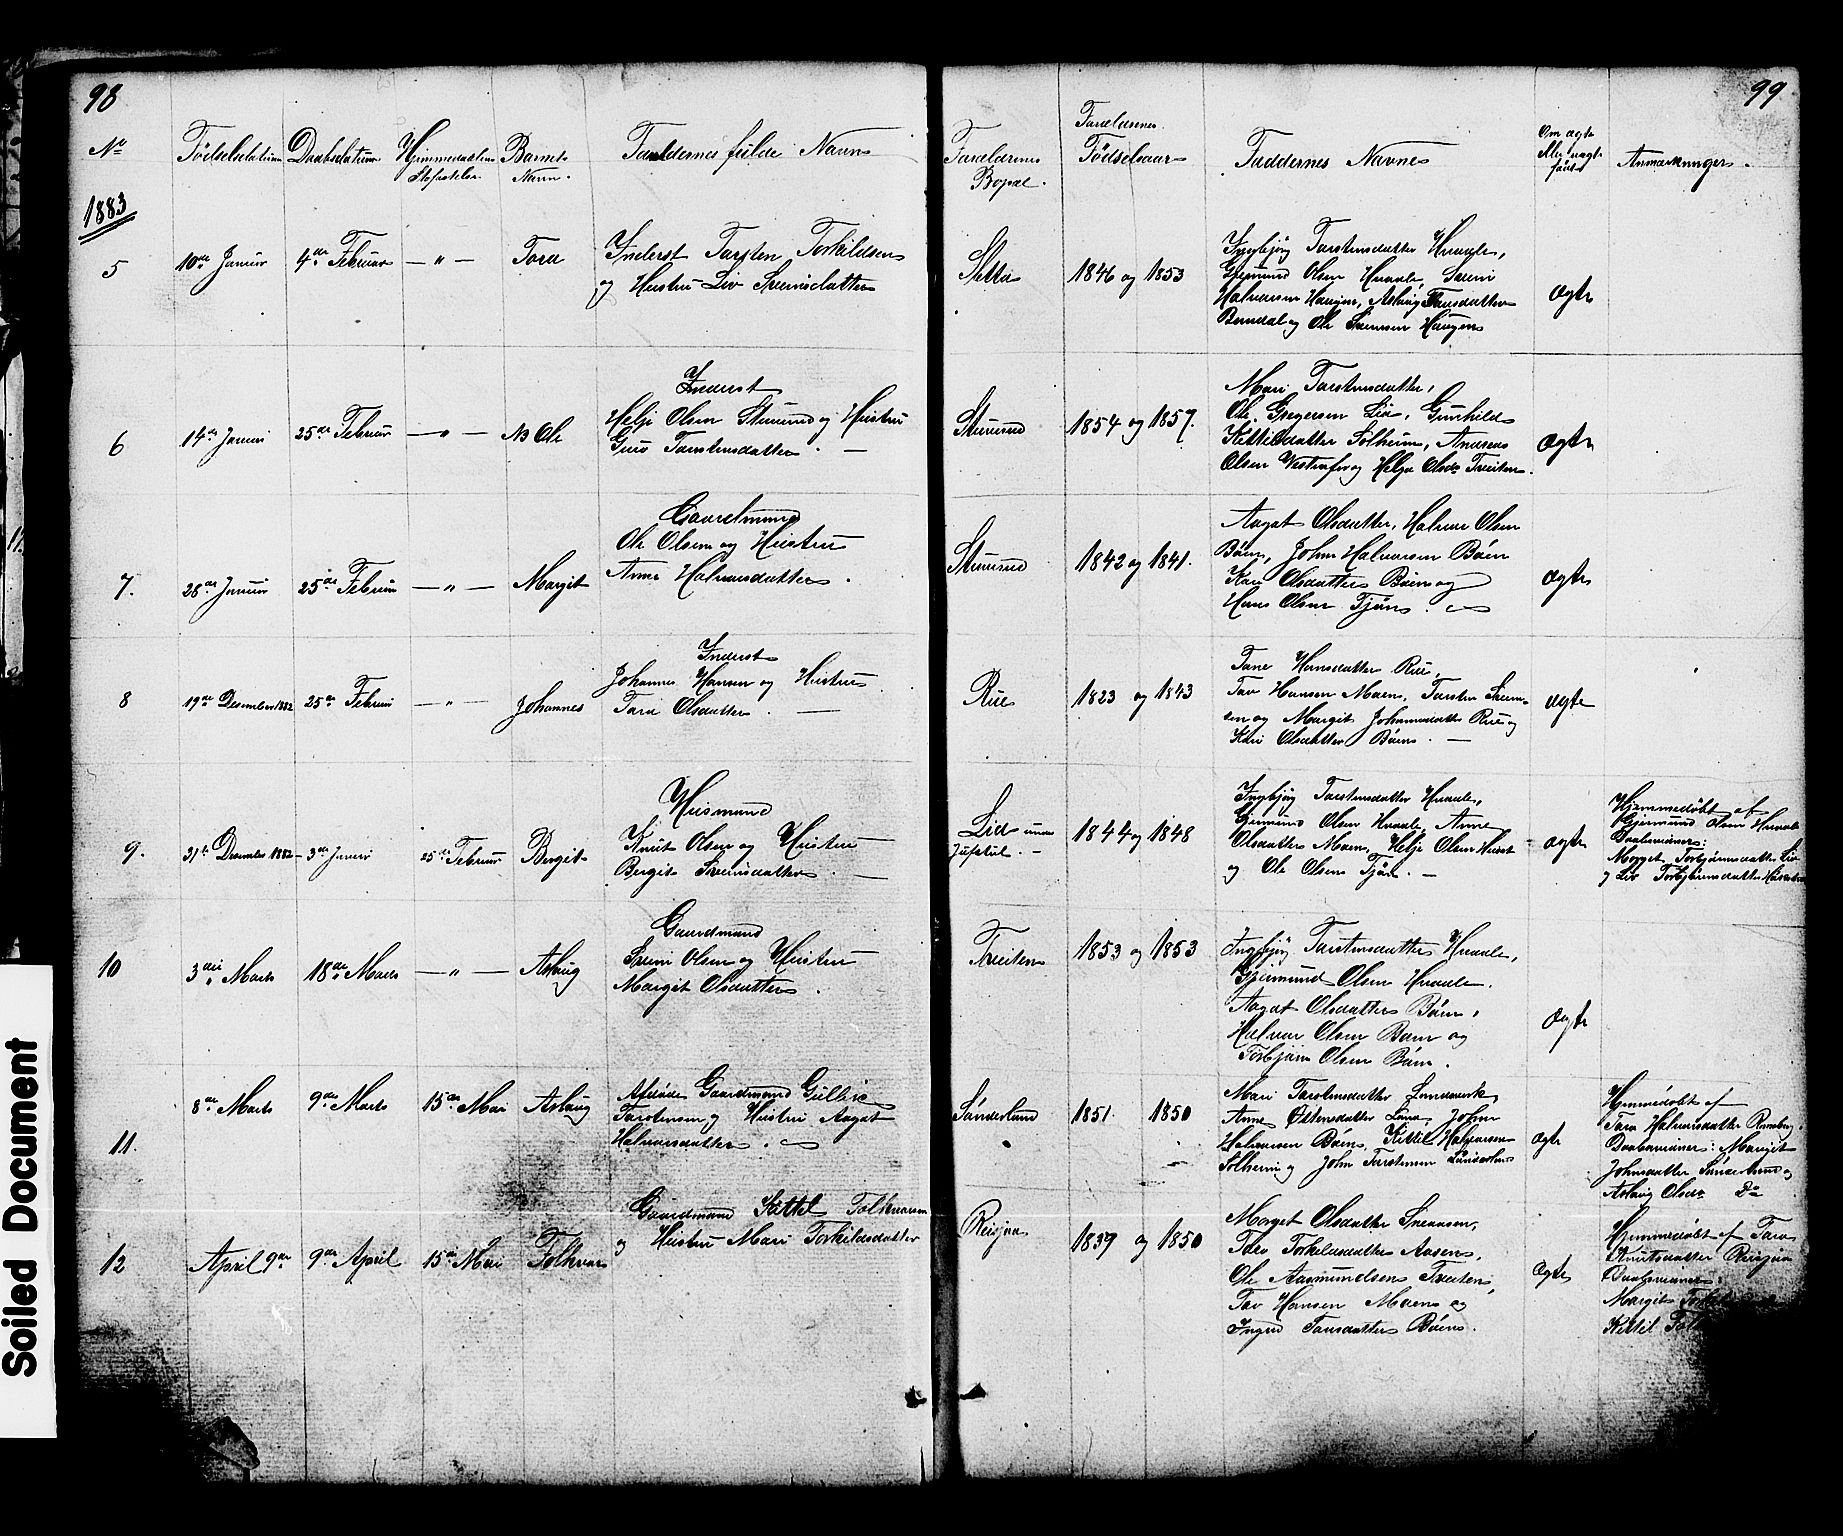 98
99
No
Födselsdatum
Daabsdatum
Hjemmedaabens
Stafestelse
Barnets
Navn.
Forældrenes fulde Navn
Forældrenes
Bopæl.
Forældrenes
Födselsaar
Faddernes Navne
Om ægte
eller uægte
födt
Anmærkninger.
1883
5
10de Januar
4de Februar
— " —
Tora
Inderst Tarsten Torkildsen
og Hustru Liv Sveinsdatter
Setta
1846 og 1853
Ingebjörg Tarstensdatter Hvaale,
Gjermund Olsen Hvaale, Svein
Halvorsen Haugen, Aslaug Tovsdatter
Bondal og Ole Svensen Haugen
Ægte
6
14de Januar
25de Februar
— " —
Ns Ole
Inderst
Helje Olsen Stuvsund og Hustru
Guro Tarstensdatter. —
Stuvsund
1854 og 1857.
Mari Tarstensdatter,
Ole Gregersen Lid, Gunhild
Kittilsdatter Solheim, Andreas
Olsen og Helje Olsdr Treiten.
Ægte
7.
28de Januar
25de Februar
— " —
Margit
Gaardmand
Ole Olsen og Hustru
Anne Halvorsdatter.
Stuvsund
1842 og 1841.
Aagat Olsdatter, Halvor Olsen
Böen, John Halvorsen Böen
Kari Olsdatter Böen og
Hans Olsen Tjön.
Ægte
8
19de December 1882
25de Februar
— " —
Johannes
Inderst
Johannes Hansen og Hustru
Tora Olsdatter. —
Rue
1823 og 1843
Tone Hansdatter Rue,
Tov Hansen Moen, Tarsten Svein-
sen og Margit Johannesdatter Rue og
Kari Olsdatter Böen. —
ægte
9.
31te December 1882
3die Januar
25de Februar
Bergit
Husmand
Knut Olsen og Hustru
Bergit Sveinsdatter. —
Lid under
Jufstul. —
1844 og 1848
Ingebjörg Tarstensdatter Hvaale,
Gjermund Olsen Hvaale, Anne
Olsdatter Moen, Helje Olsen
og Ole Olsen Tjön. —
ægte
Hjemmedöbt af
Gjermund Olsen Hvaale
Daabsvidner:
Morget Torbjörnsdatter Lid
og Liv Torbjörnsdatter
10
3die Marts
18de Marts
— " —
Aslaug
Gaardmand
Svein Olsen og Hustru
Margit Olsdatter.
Treiten
1853 og 1853
Ingebjörg Tarstensdatter Hvaale,
Gjermund Olsen Hvaale.
Aagat Olsdatter Böen,
Halvor Olsen Böen og
Torbjörn Olsen Böen.
Ægte
11.
8de Marts
9de Marts
15de Mai
Aslaug
Afdöde Gaardmand Gullik
Tarstensen og Hustru Aagat
Halvorsdatter.
Sönderland
1851. 1850
Mari Tarstensdatter Landsverk
Anne Östensdatter Lona, John
Halvorsen Böen, Kittil Halvorsen
Solheim og John Tarstensen Sönderland
Ægte
Hjemmedöbt af
Tora Halvorsdatter
Daabsvidner: Margit
Johnsdatter Sönderland og
Aslaug Olsdr Do
12
April 9de
9de April
15de Mai
Folkvar
Gaardmand Kittil Folkvarsen
og Hustru Mari Torkildsdatter
Reisjaa
1839 og 1850
Morget Olsdatter Sneaasen,
Torkildsdatter Aasen,
Ole Aasmundsen Treiten,
Tov Hansen Moen og
Ingrid Tovsdatter Böen.
Ægte
Hjemmedöbt af Tora
Knutsdatter Reisjaa
Daabsvidner:
Margit
Kittil
Soiled Document